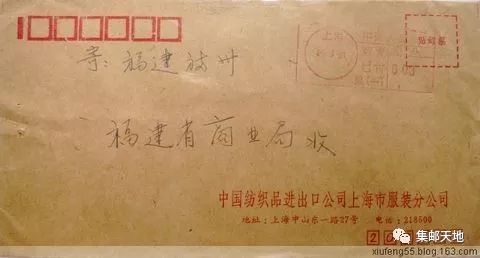 上海
贴邮票
寄：福建福州
福建省商业局收
中国纺织品进出口公司上海市服装分公司
地址：上海中山东一路27号 电话：218500
200
集邮天地
xiufeng55.blog.163.com